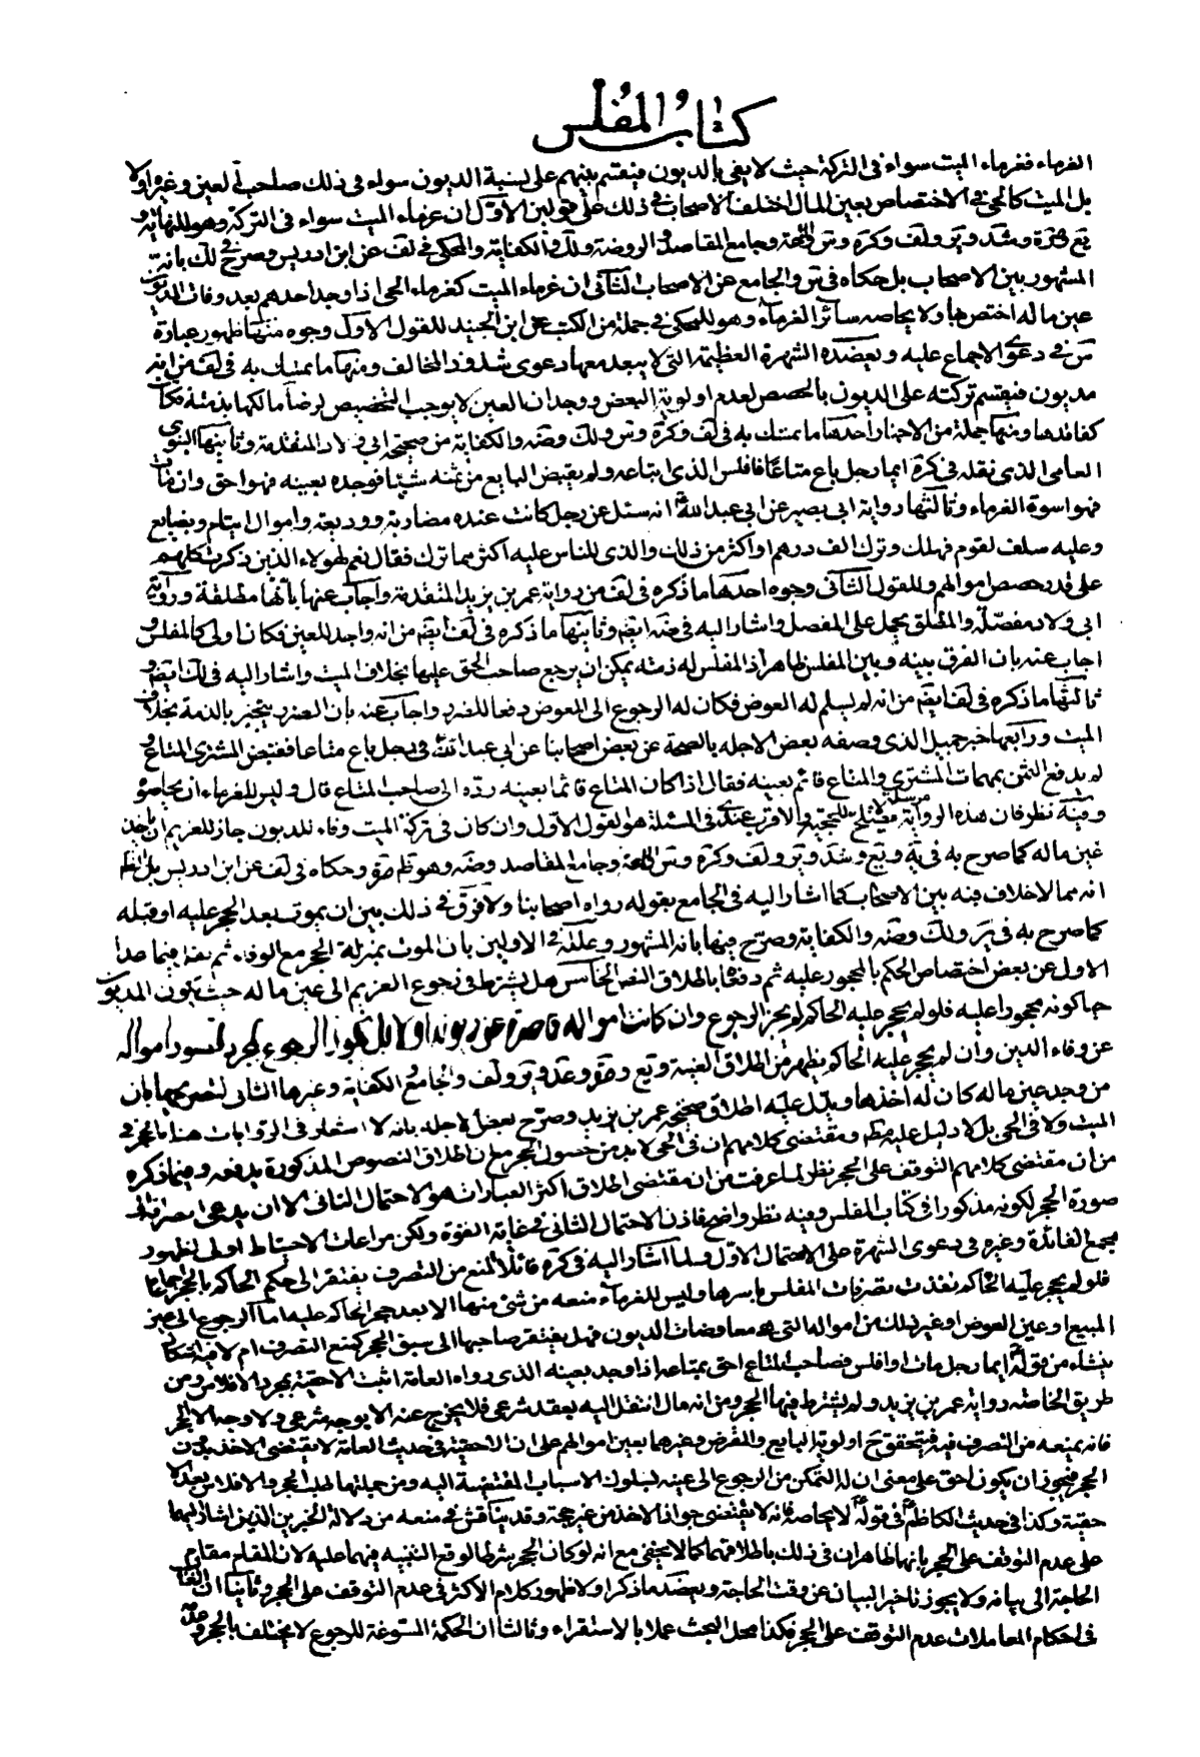 كتاب المفلس
الغرماء فغرماء الميت سواء فى التركة حيث لا يفى بالديون فيقتسم بينهم على نسبة الديون سواء فى ذلك صاحب العين وغيره اولا
بل الميت كالحى فى الاختصاص بعين المال اختلف الاصحاب فى ذلك على قولين الاول ان غرماء الميت سواء فى التركة وهو للنهاية و
يع وشد وير ولف وكره وس واللمعة وجامع المقاصد والروضة ولك والكفاية والمحكى فى لف عن ابن ادريس وصرح فى لك بانه
المشهور بين الاصحاب بل حكاه فى س والجامع عن الاصحاب الثانى ان غرماء الميت كغرماء الحى اذا وجد احدهم بعد وفات المديون
عين ماله اختص بها ولا يحاصه سائر الغرماء وهو للمحكى فى جملة من الكتب عن ابن الجنيد للقول الاول وجوه منها ظهور عبارة
س فى دعوى الاجماع عليه ويعضده الشهرة العظيمة التى لا يبعد معها دعوى شذوذ المخالف ومنها ما تمسك به فى لف من انه
مديون فيقسم تركته على الديون بالحصص لعدم اولوية البعض ووجدان العين لا يوجب التخصيص لرضا مالكها بذمته فكان
كفاقدها ومنها جملة من الاخبار احدها ما تمسك به فى لف وكره وس ولك وضه والكفاية من صحيحة ابى ولاد المتقدمة وثانيها النبوى
العامى الذى نقله فى كره ايما رجل باع متاعا فافلس الذى ابتاعه ولم يقبض البايع من ثمنه شيئا فوجده بعينه فهو احق وان مات
فهو اسوة الغرماء وثالثها رواية ابى بصير عن ابى عبد الله انه سئل عن رجل كانت عنده مضاربة ووديعة واموال ايتام وبضايع
وعليه سلف لقوم فهلك وترك الف درهم او اكثر من ذلك والذى للناس عليه اكثر مما ترك فقال يقسم لهؤلاء الذين ذكرت كلهم
على قدر حصص اموالهم وللقول الثانى وجوه احدها ما ذكره فى لف من رواية عمر بن يزيد المتقدمة واجاب عنها بانها مطلقة ورواية
ابى ولاد مفصلة والمطلق يحمل على المفصل واشار اليه فى ضه ايضا وثانيها ما ذكره فى لف ايضا من انه واجد للعين فكان اولى كالمفلس و
اجاب عنه بان الفرق بينه وبين المفلس ظاهر اذ المفلس له ذمة يمكن ان يرجع صاحب الحق عليها بخلاف الميت واشار اليه فى لك ايضا و
ثالثها ما ذكره فى لف ايضا من انه لم يسلم له العوض فكان له الرجوع الى المعوض دفعا للضرر واجاب عنه بان الضرر ينجبر بالذمة بخلاف
الميت ورابعها خبر جميل الذى وصفه بعض الاجلة بالصحة عن بعض اصحابنا عن ابى عبد الله فى رجل باع متاعا فقبض المشترى المتاع و
لم يدفع الثمن ثم مات المشترى والمتاع قائم بعينه فقال اذا كان المتاع قائما بعينه رده الى صاحب المتاع قال وليس للغرماء ان يحاصوه
وفيه نظر فان هذه الرواية مرسلة لا تصلح للحجية والاقرب عندى فى المسئلة هو القول الاول وان كان فى تركة الميت وفاء للديون جاز للغريم ان ياخذ
عين ماله كما صرح به فى يه ويع وشد وير ولف وكره وس واللمعة وجامع المقاصد وضه وهو ظاهر وحكاه فى لف عن ابن ادريس بل الظاهر
انه مما لا خلاف فيه بين الاصحاب كما اشار اليه فى الجامع بقوله رواه اصحابنا ولا فرق فى ذلك بين ان يموت بعد الحجر عليه او قبله
كما صرح به فى ير ولك وضه والكفاية وصرح فيها بانه المشهور وعلله فى الاولين بان الموت بمنزلة الحجر مع الوفاء ثم نقلا فيما عدا
الاول عن بعض اختصاص الحكم بالمحجور عليه ثم دفعا باطلاق النص الخامس هل يشترط فى رجوع الغريم الى عين ماله حيث يكون المديون
حيا كونه محجورا عليه فلو لم يحجر عليه الحاكم لم يجز الرجوع وان كانت امواله قاصرة عن ديونه او لا بل يجوز الرجوع بمجرد قصور امواله
عن وفاء الدين وان لم يحجر عليه الحاكم يظهر من اطلاق الغنية ويع وعد وير ولف والجامع والكفاية وغيرها الثانى لتصريحها بان
من وجد عين ماله كان له اخذها ويدل عليه اطلاق صحيحة عمر بن يزيد وصرح بعض الاجلة بانه لا اشعار فى الروايات هنا بالحجر فى
الميت ولا فى الحى بل لا دليل عليه ومقتضى كلامهم ان فى الحى لابد من حصول الحجر مع ان اطلاق النصوص المذكورة يدفعه وفيما ذكره
من ان مقتضى كلامهم التوقف على الحجر نظر لما عرفت من ان مقتضى اطلاق اكثر العبارات هو الاحتمال الثانى الا ان يدعى انصرافه الى
صورة الحجر لكونه مذكورا فى كتاب المفلس وفيه نظر واضح فاذن الاحتمال الثانى فى غاية القوة ولكن مراعات الاحتياط اولى لظهور
مجمع الفائدة وغيره فى دعوى الشهرة على الاحتمال الاول ولما اشار اليه فى كره قائلا المنع من التصرف يفتقر الى حكم الحاكم بالحجر اجماعا
فلو لم يحجر عليه الحاكم نفذت تصرفات المفلس باسرها وليس للغرماء منعه من شئ منها الا بعد حجر الحاكم عليه اما الرجوع الى عين
المبيع او عين العوض او غير ذلك من امواله التى هى معاوضات الديون فهل يفتقر صاحبها الى سبق الحجر كمنع التصرف ام لا فيه اشكال
ينشاء من قوله ايما رجل مات او افلس فصاحب المتاع احق بمتاعه اذا وجد بعينه الذى رواه العامة اثبت الاحقية بمجرد الافلاس ومن
طريق الخاصة رواية عمر بن يزيد ولم يشترط فيها الحجر ومن انه مال انتقل اليه بعقد شرعى فلا يخرج عنه الا بوجه شرعى ولا وجه الا الحجر
فانه يمنعه من التصرف فيه فيتحقق ح اولوية البايع والمقرض وغيرهما بعين اموالهم على ان الاحقية فى حديث العامة لا يقتضى الاخذ بدون
الحجر فيجوز ان يكون احق على معنى ان له التمكن من الرجوع الى عينه لسلوك الاسباب المفضية اليه ومن جملتها طلب الحجر والافلاس يفيد الا
حقية وكذا فى حديث الكاظم فى قوله لا يحاصه فانه لا يقتضى جواز الاخذ من غير حجة وقد يناقش فى منعه من دلالة الخبرين الذين اشار اليهما
على عدم التوقف على الحجر بانها ظاهران فى ذلك باطلاقهما كما لا يخفى مع انه لو كان الحجر شرطا لوقع التنبيه فيهما عليه لان المقام مقام
الحاجة الى بيانه ولا يجوز تاخير البيان عن وقت الحاجة ويعضد ما ذكر اولا ظهور كلام الاكثر فى عدم التوقف على الحجر وثانيا ان الغالب
فى احكام المعاملات عدم التوقف على الحجر فكذا محل البحث عملا بالاستقراء وثالثا ان الحكمة المسوغة للرجوع لا يختلف بالحجر وعدمه